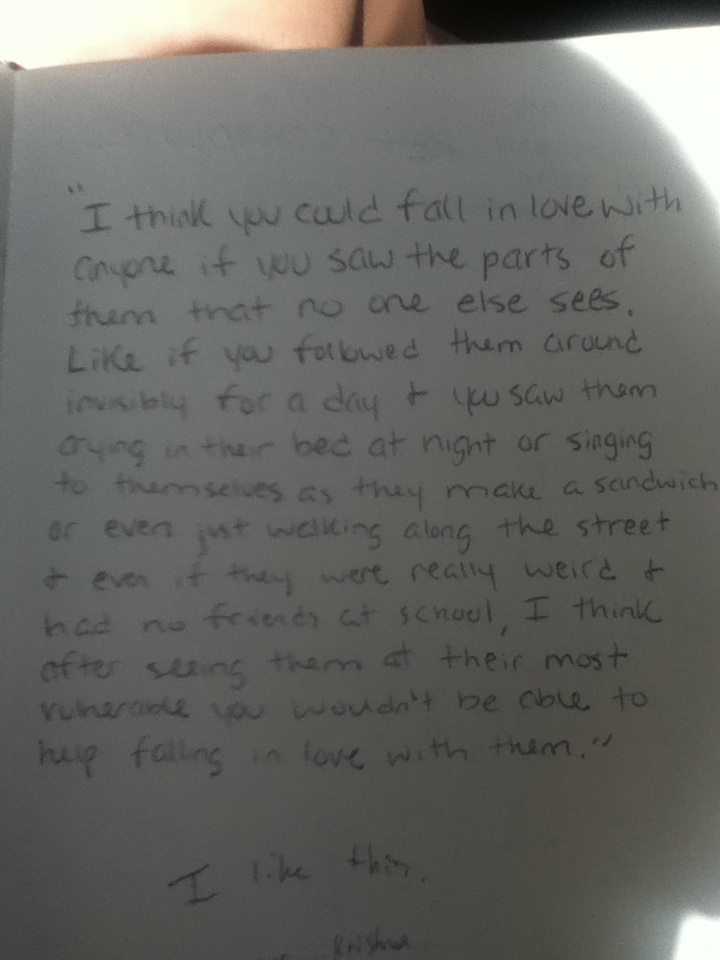 "I think you could fall in love with
anyone if you saw the parts of
them that no one else sees.
Like if you followed them around
invisibly for a day + you saw them
crying in their bed at night or singing
to themselves as they make a sandwich
or even just walking along the street
+ even if they were really weird +
had no friends at school, I think
after seeing them at their most
vulnerable you wouldn't be able to
help falling in love with them."
I like this.
Krishna